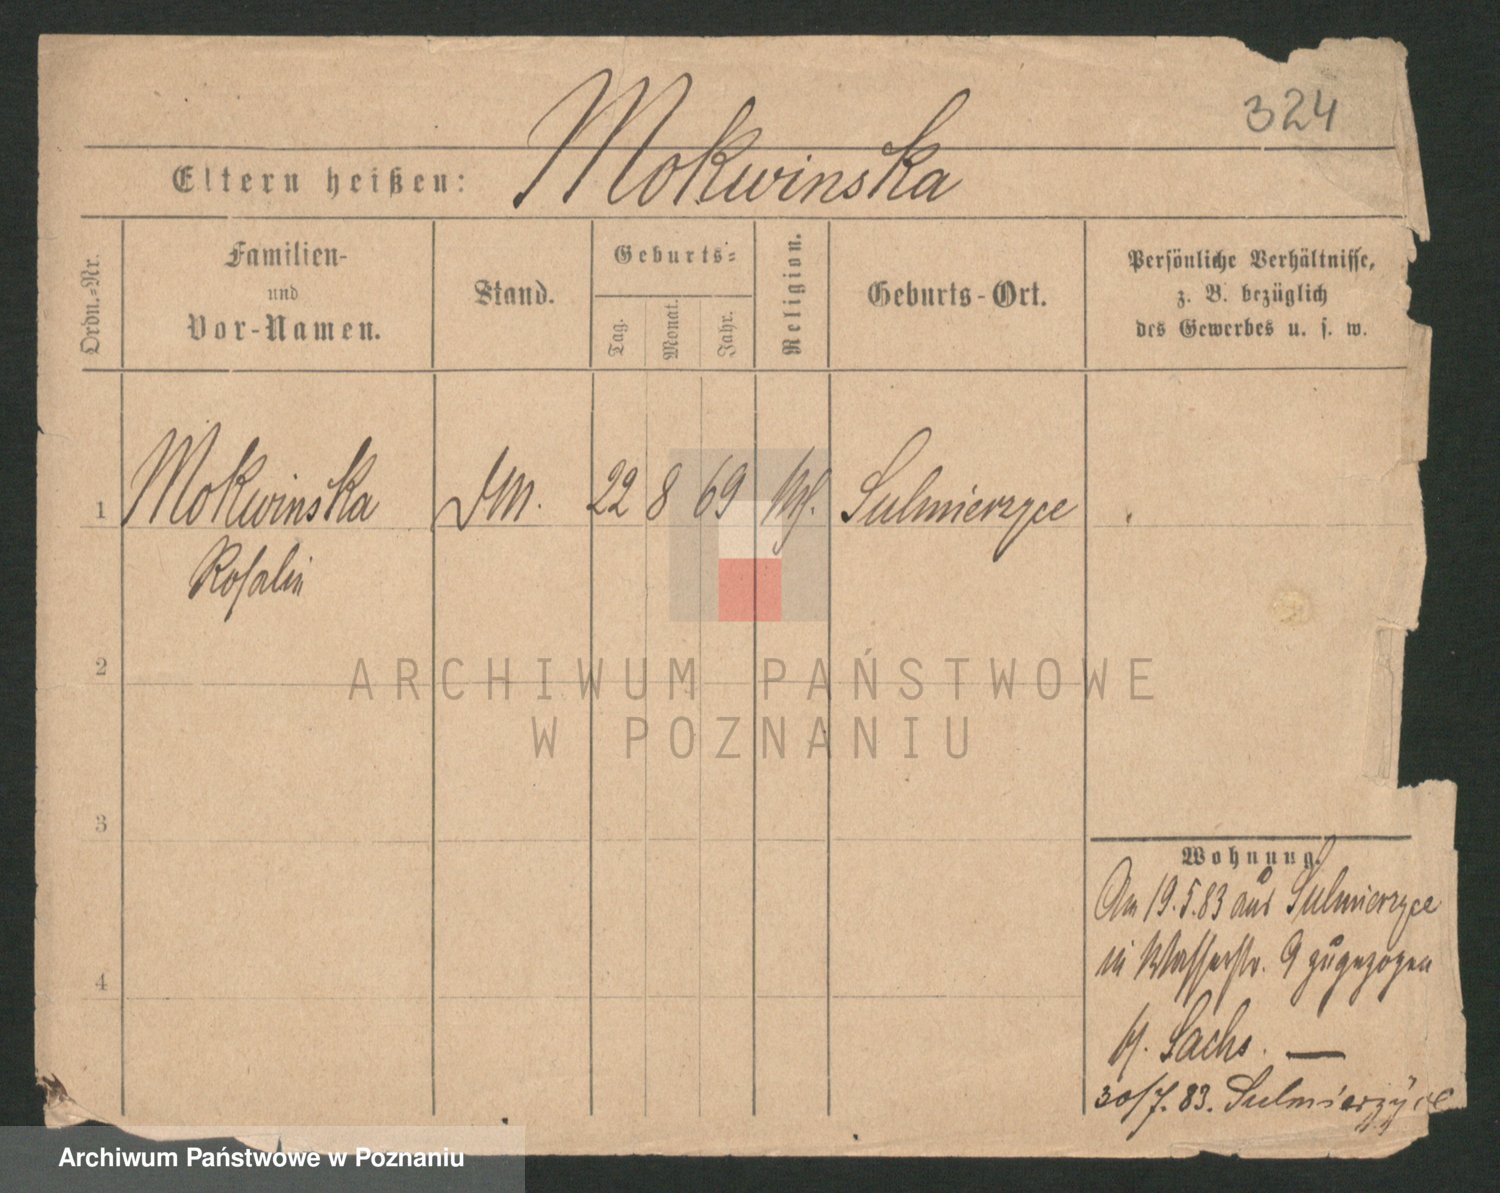 324
Eltern heißen: Mokwinska
Ordn.-Nr.
Familien-
und
Vor-Namen.
Stand.
Geburts-
Tag.
Monat.
Jahr.
Religion.
Geburts-Ort.
Persönliche Verhältnisse,
z. B. bezüglich
des Gewerbes u. s. w.
1 Mokwinska DM. 22 8 69 Sulmierzyce
Rosalie
2
3
4
Wohnung.
Am 19.5.83 aus Sulmierzyce
in Wasserstr. 9 zugezogen
Sachs. —
30/7. 83. Sulmierzyce
ARCHIWUM PAŃSTWOWE
W POZNANIU
Archiwum Państwowe w Poznaniu